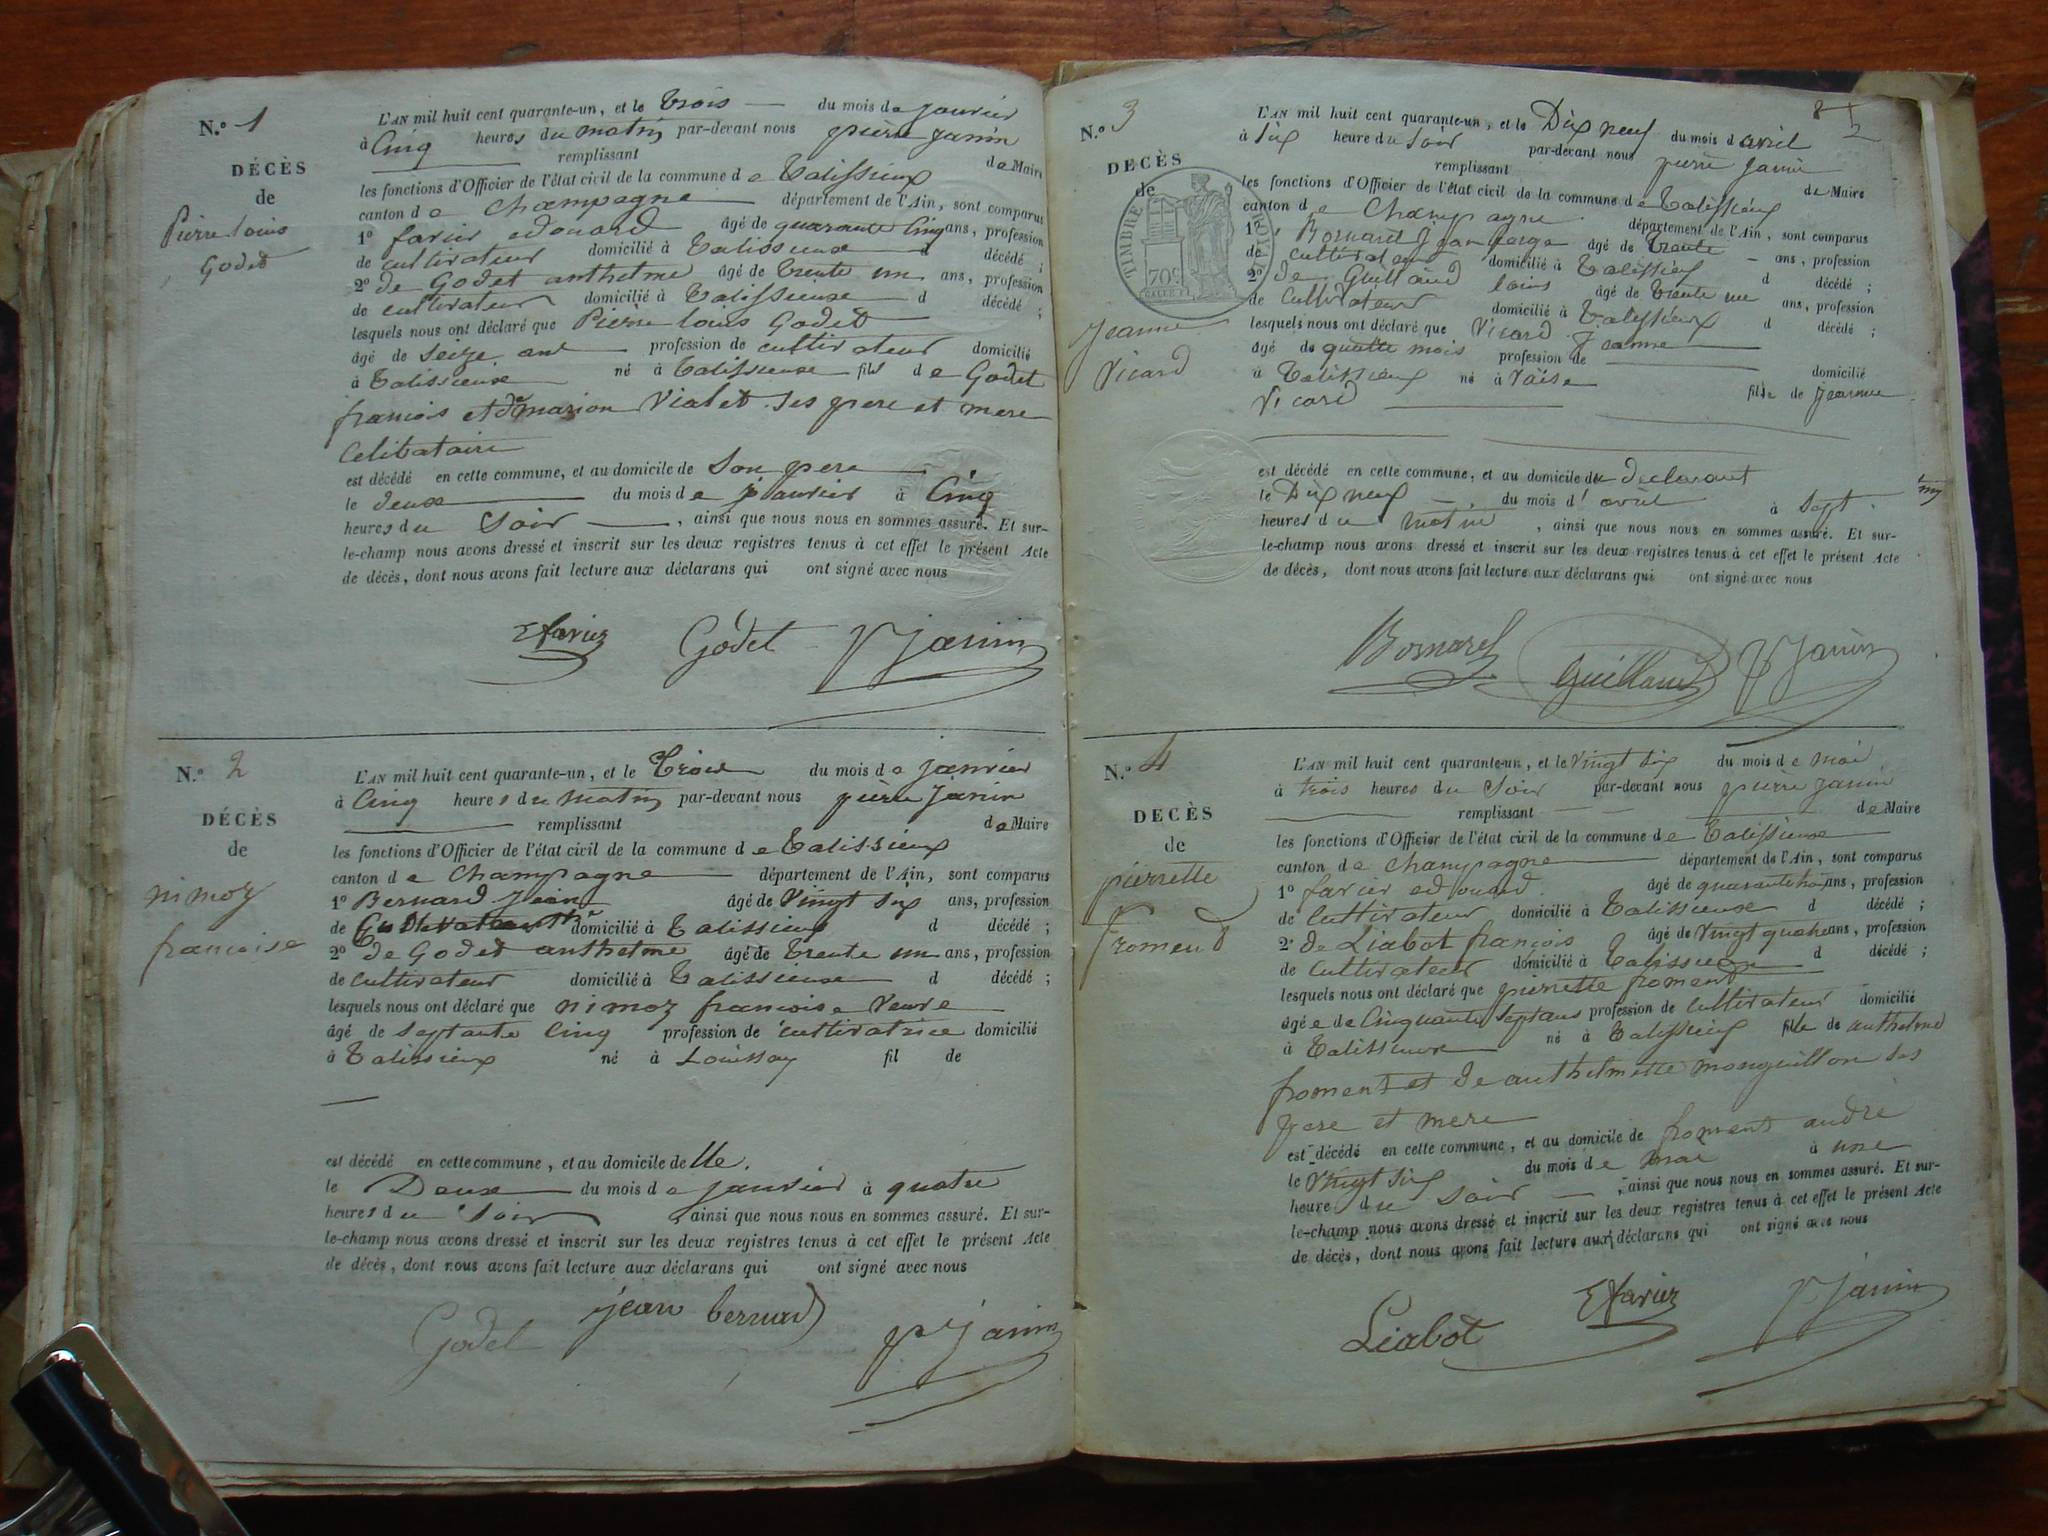 N.º 1
DÉCÈS
de
Pierre louis
Godet
L'AN mil huit cent quarante-un, et le trois du mois de janvier
à Cinq heures du matin par-devant nous pierre janin
remplissant de Maire
les fonctions d'Officier de l'état civil de la commune de talissieux
canton de Champagne département de l'Ain, sont comparus
1º favier edouard âgé de quarante Cinq ans, profession
de cultivateur domicilié à talissieux d décédé ;
2º de Godet anthelme âgé de trente un ans, profession
de cultivateur domicilié à talissieux d décédé ;
lesquels nous ont déclaré que Pierre louis Godet
âgé de seize ans profession de cultivateur domicilié
à talissieux né à talissieux fils de Godet
francois et de marion Vialet ses pere et mere
Celibataire
est décédé en cette commune, et au domicile de son pere
le deux du mois de janvier à Cinq
heures du soir, ainsi que nous nous en sommes assuré. Et sur-
le-champ nous avons dressé et inscrit sur les deux registres tenus à cet effet le présent Acte
de décès, dont nous avons fait lecture aux déclarans qui ont signé avec nous
Efavier Godet P Janin
N.º 2
DÉCÈS
de
nimoz
francoise
L'AN mil huit cent quarante-un, et le trois du mois de janvier
à Cinq heures du matin par-devant nous pierre janin
remplissant de Maire
les fonctions d'Officier de l'état civil de la commune de talissieux
canton de Champagne département de l'Ain, sont comparus
1º Bernard Jean âgé de Vingt six ans, profession
de domicilié à talissieux d décédé ;
2º de Godet anthelme âgé de trente un ans, profession
de cultivateur domicilié à talissieux d décédé ;
lesquels nous ont déclaré que nimoz francoise veuve
âgé de septante Cinq profession de cultivatrice domicilié
à talissieux né à fil de
est décédé en cette commune, et au domicile delle.
le Deux du mois de janvier à quatre
heures du soir ainsi que nous nous en sommes assuré. Et sur-
le-champ nous avons dressé et inscrit sur les deux registres tenus à cet effet le présent Acte
de décès, dont nous avons fait lecture aux déclarans qui ont signé avec nous
Godet jean bernard P Janin
8 1/2
N.º 3
DECÈS
de
TIMBRE ROYAL
70 c
Jeanne
Vicard
L'AN mil huit cent quarante-un, et le Dix neuf du mois d avril
à six heure du soir par-devant nous pierre janin
remplissant de Maire
les fonctions d'Officier de l'état civil de la commune de talissieux
canton de Champagne département de l'Ain, sont comparus
1º Bornarel Jean âgé de trente ans, profession
de cultivateur domicilié à talissieux d décédé ;
2º de Guilland louis âgé de trente un ans, profession
de cultivateur domicilié à talissieux d décédé ;
lesquels nous ont déclaré que Vicard Jeanne
âgé de quatre mois profession de domicilié
à talissieux né à Vaise fille de Jeanne
Vicard
est décédé en cette commune, et au domicile du declarant
le Dix neuf du mois d'avril à sept
heures du matin, ainsi que nous nous en sommes assuré. Et sur-
le-champ nous avons dressé et inscrit sur les deux registres tenus à cet effet le présent Acte
de décès, dont nous avons fait lecture aux déclarans qui ont signé avec nous
Bornarel Guilland P Janin
N.º 4
DECÈS
de
pierrette
froment
L'AN mil huit cent quarante-un, et le vingt six du mois de mai
à trois heures du soir par-devant nous pierre janin
remplissant de Maire
les fonctions d'Officier de l'état civil de la commune de talissieux
canton de Champagne département de l'Ain, sont comparus
1º favier edouard âgé de ans, profession
de cultivateur domicilié à talissieux d décédé ;
2º de Liabot françois âgé de Vingt quatre ans, profession
de cultivateur domicilié à talissieux d décédé ;
lesquels nous ont déclaré que pierrette froment
âgée de Cinquante sept ans profession de cultivateur domicilié
à talissieux né à talissieux fille de anthelme
froment et de anthelmette monguillon ses
pere et mere
est décédé en cette commune, et au domicile de froment andre
le vingt six du mois de mai à une
heure du soir, ainsi que nous nous en sommes assuré. Et sur-
le-champ nous avons dressé et inscrit sur les deux registres tenus à cet effet le présent Acte
de décès, dont nous avons fait lecture aux déclarans qui ont signé avec nous
Liabot Efavier P Janin